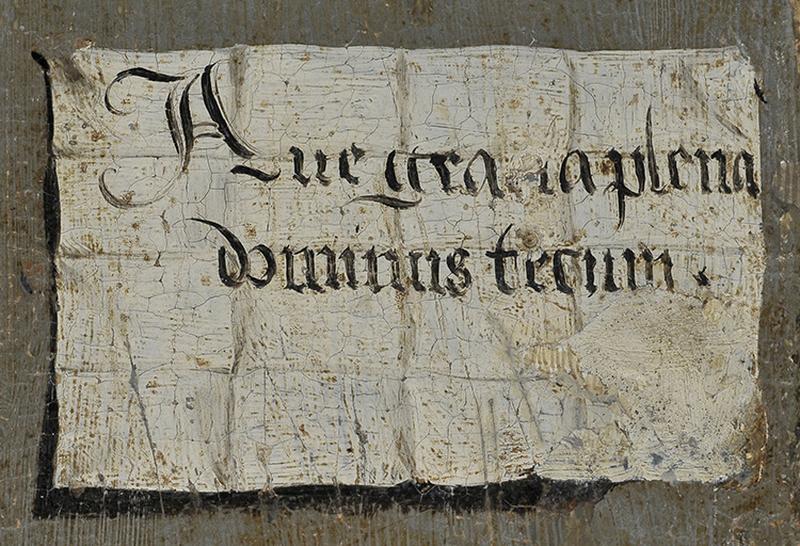 Aue gracia plena
dominus tecum .